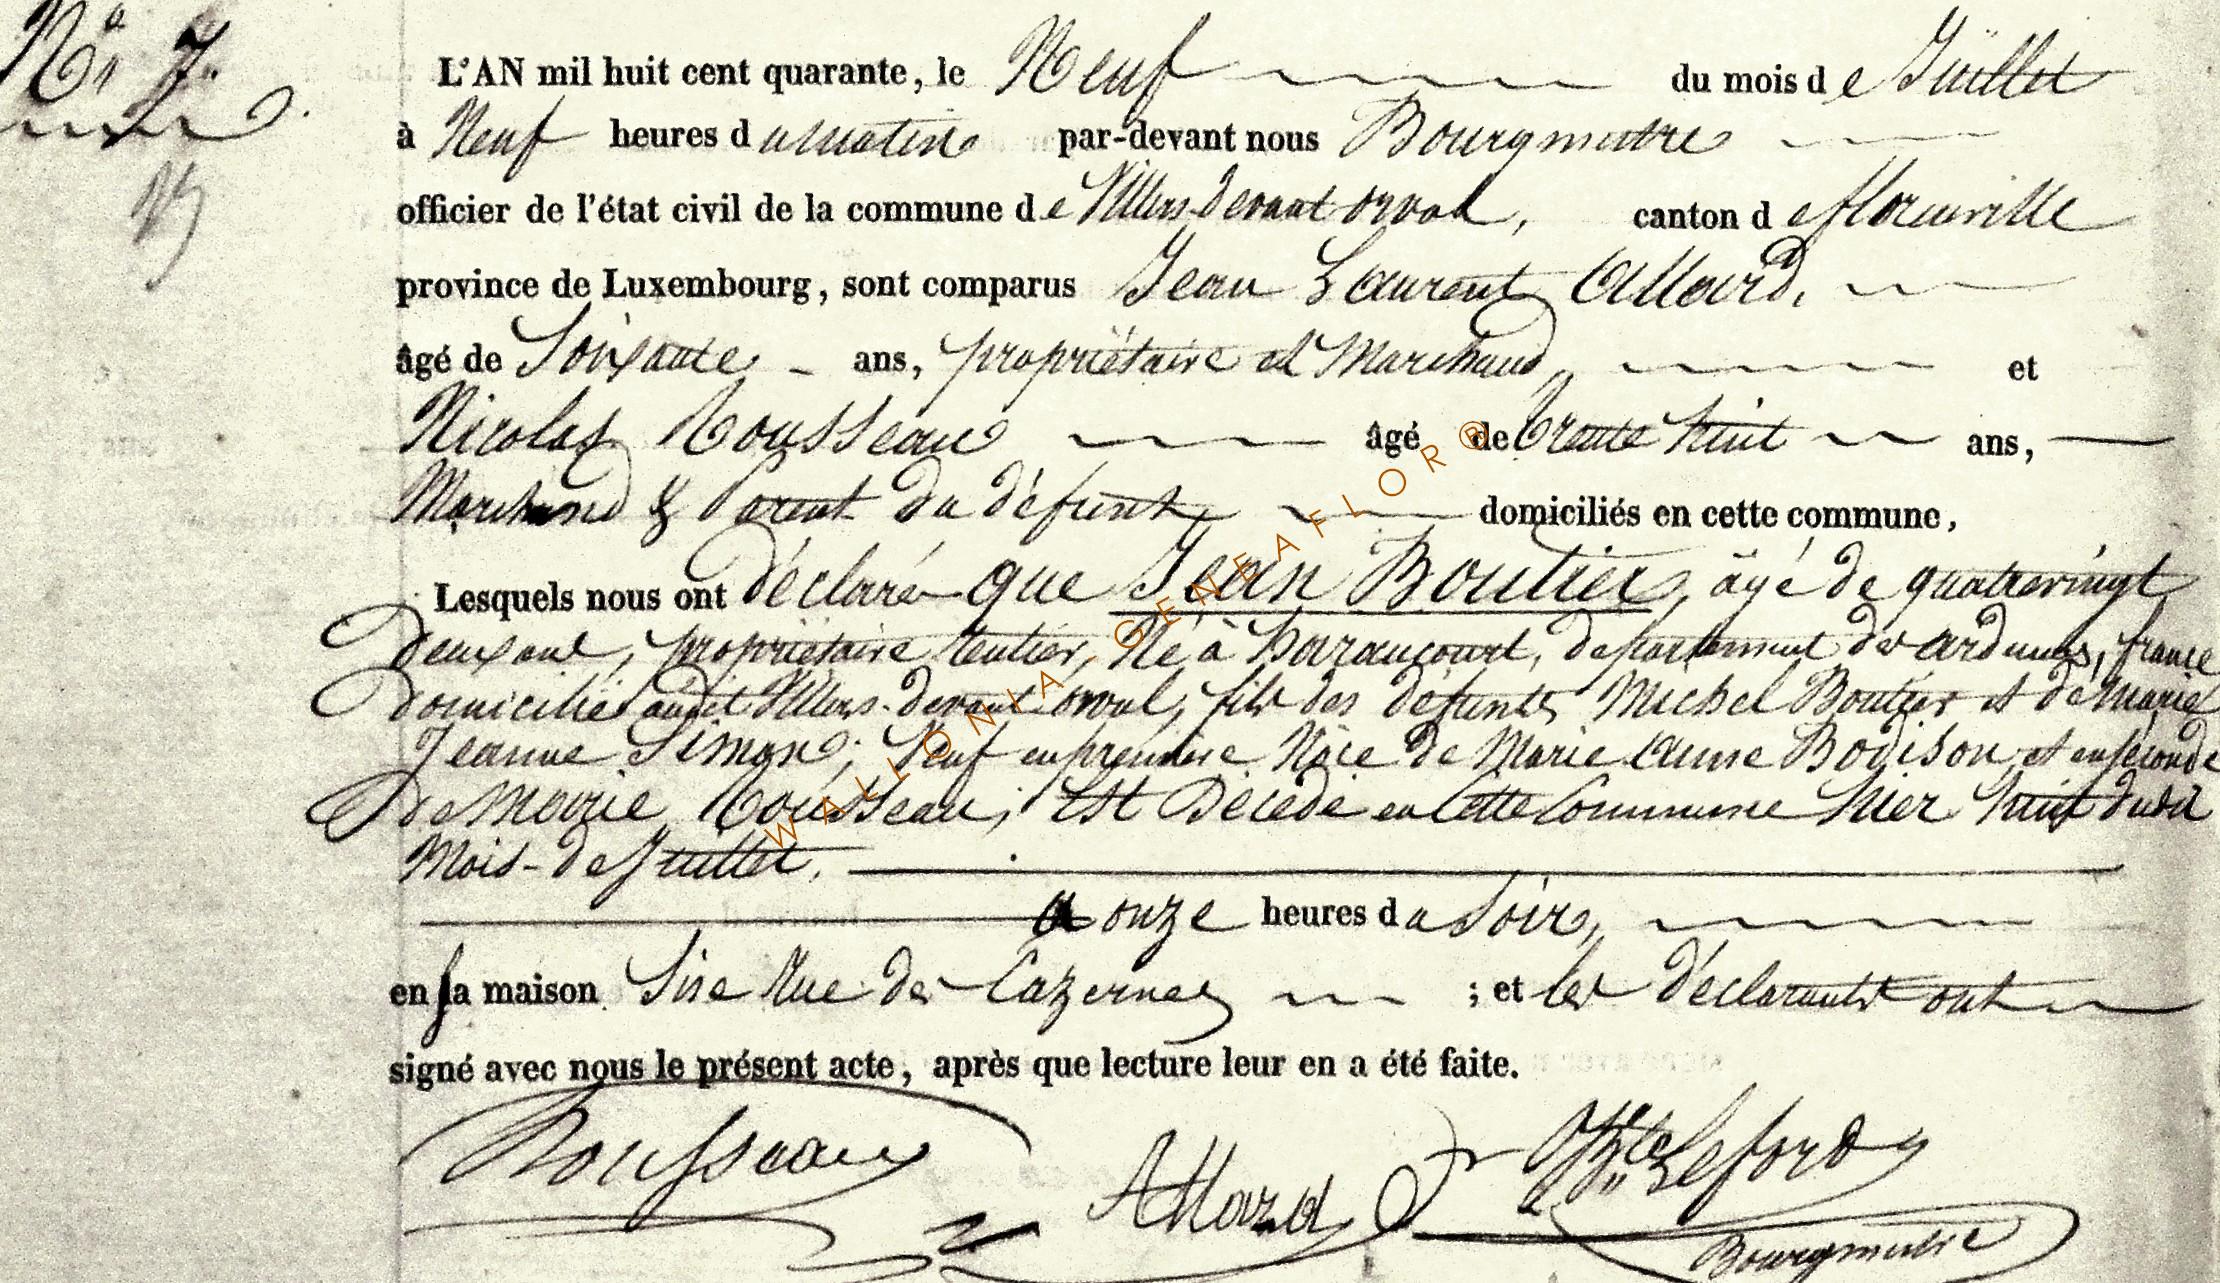 No 7.
L'AN mil huit cent quarante, le Neuf du mois de Juillet
à Neuf heures du matin par-devant nous Bourgmestre
officier de l'état civil de la commune de Villers-devant orval, canton de florenville
province de Luxembourg, sont comparus Jean Laurent Allard,
âgé de Soixante ans, propriétaire et Marchand, et
Nicolas Rousseau âgé de trente huit ans,
Marchand & Parent du défunt, domiciliés en cette commune,
Lesquels nous ont déclaré que Jean Boutier, âgé de quatrevingt
deux ans, propriétaire rentier, Né à haraucourt, departement des ardennes, france
domicilié audit Villers-devant orval, fils des défunts Michel Boutier et de Marie
Jeanne Simon; Veuf en première Nôce de Marie Anne Bodison, et en seconde
de Marie Rousseau; Est Décédé en cette Commune hier huit dudit
Mois de Juillet.
a onze heures du Soir,
en sa maison Sise Rue des Cazernes ; et les déclarants ont
signé avec nous le présent acte, après que lecture leur en a été faite.
Rousseau
Allard
Leford
Bourgmestre
WALLONIA GENEAFLOR®